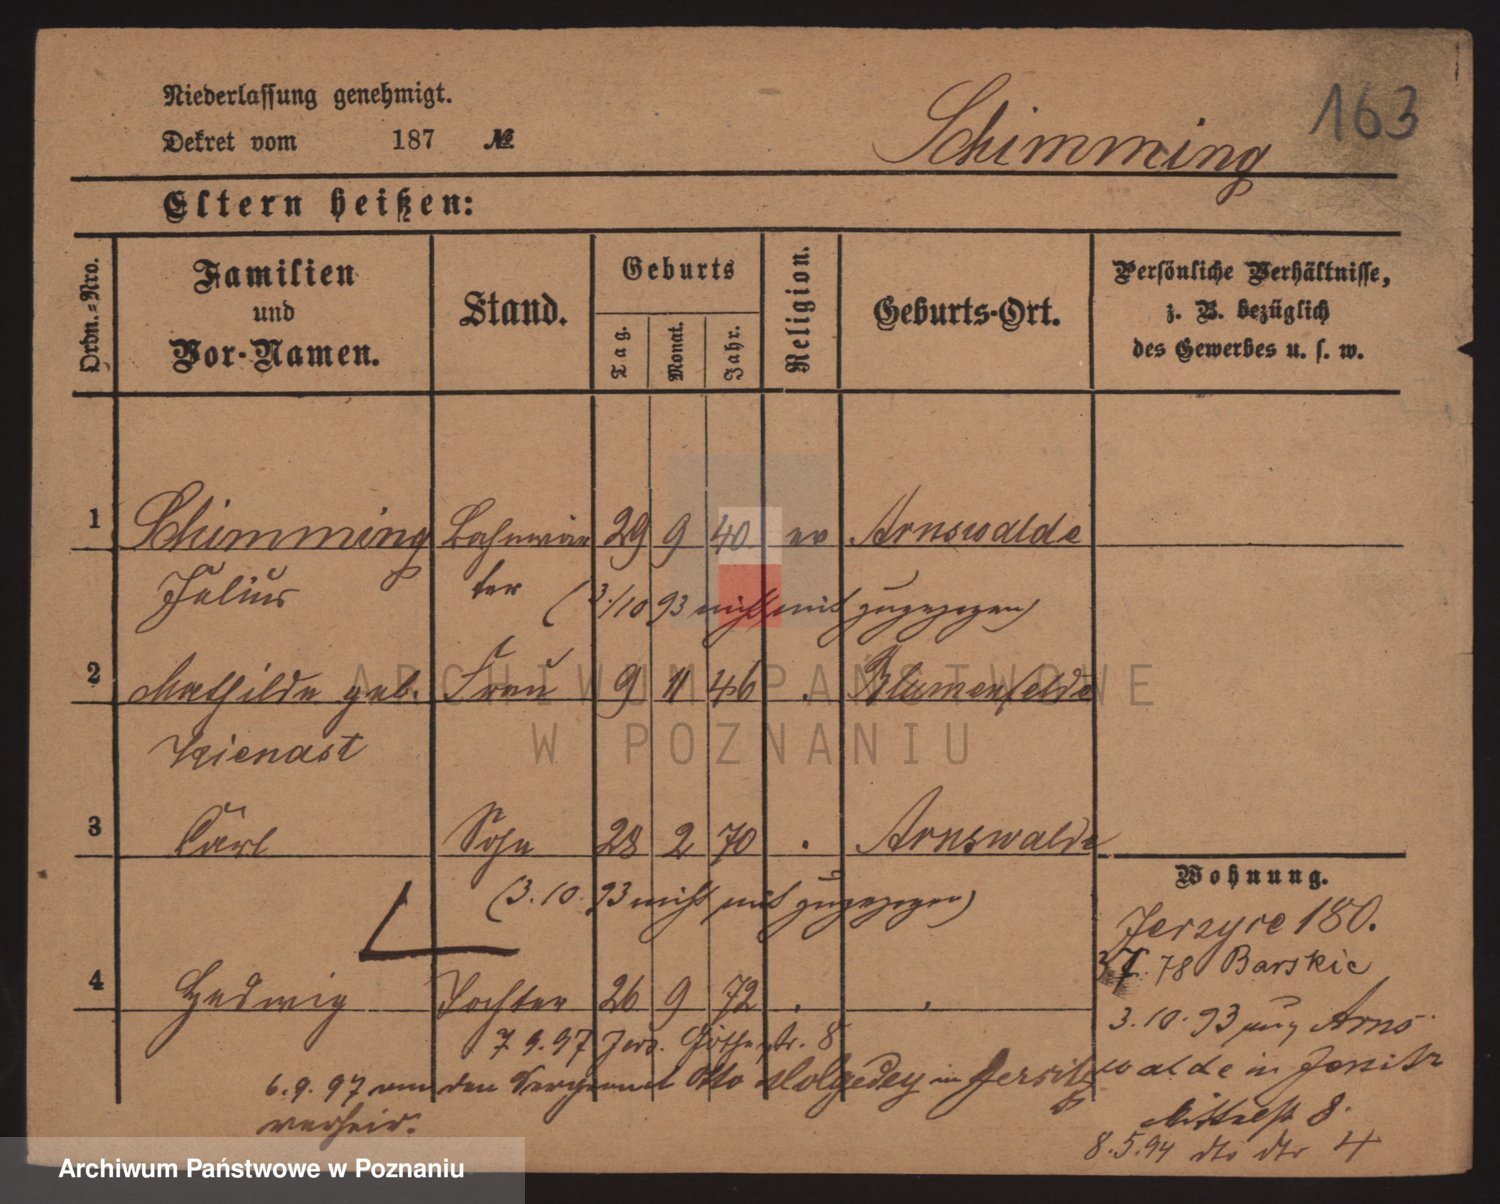 Niederlassung genehmigt.
Dekret vom 187 №
Schimming 163
Eltern heißen:
Ordn.-Nro.
Familien
und
Vor-Namen.
Stand.
Geburts
Tag.
Monat.
Jahr.
Religion.
Geburts-Ort.
Persönliche Verhältnisse,
z. B. bezüglich
des Gewerbes u. s. w.
1 Schimming Bahnwär 29 9 40 ev Arnswalde
Julius ter (3/10 93 nicht mit zugezogen)
2 Mathilde geb. Frau 9 11 46 . Blumenfelde
Kienast
3 Carl Sohn 28 2 70 . Arnswalde
(3.10.93 nicht mit zugezogen)
4 Hedwig Tochter 26 9 72 . .
7.9.97 Jers. Göthestr. 8
6.9.97 von den Otto Molgedey in Jersitz
verheir.
Wohnung.
Jerzyce 180.
78 Barskie
3.10.93 zug Arns
walde in Jersitz
Mittelst 8.
8.5.94 dto dto 4
ARCHIWUM PAŃSTWOWE
W POZNANIU
Archiwum Państwowe w Poznaniu